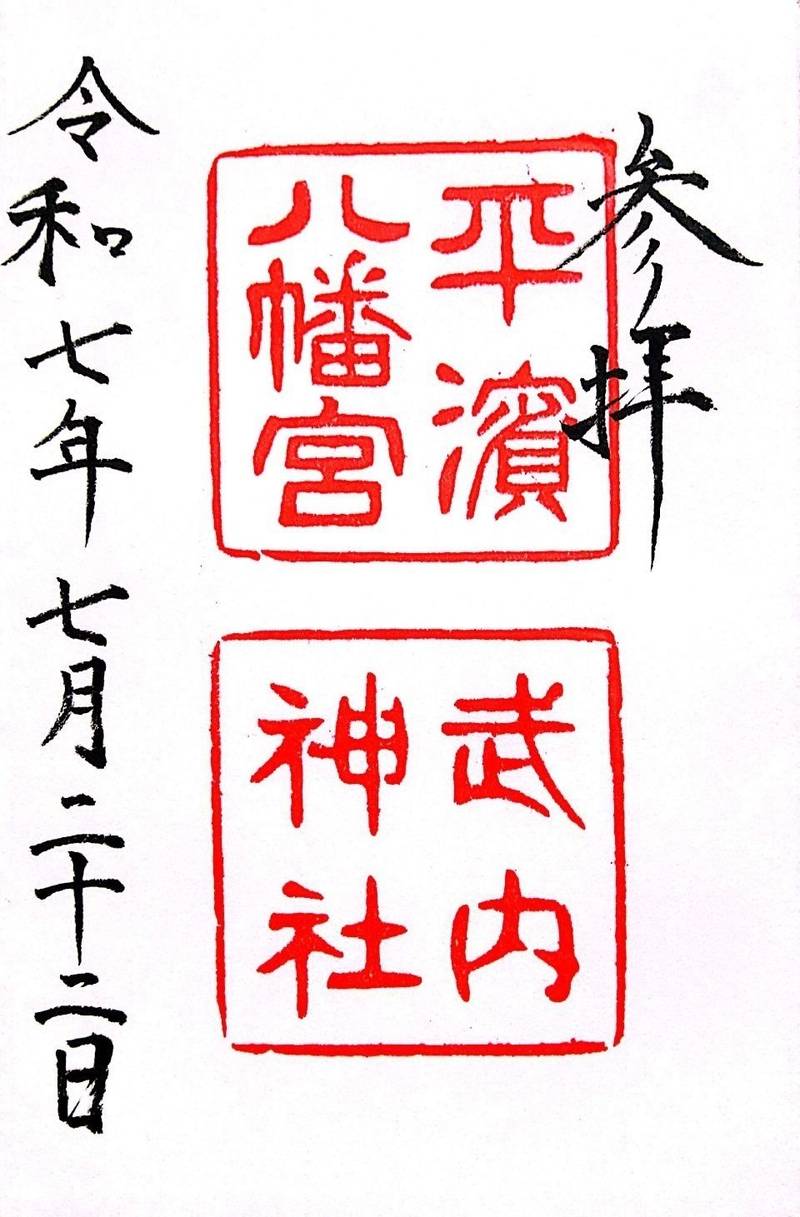 参拝
平濱
八幡宮
武内
神社
令和七年七月二十二日